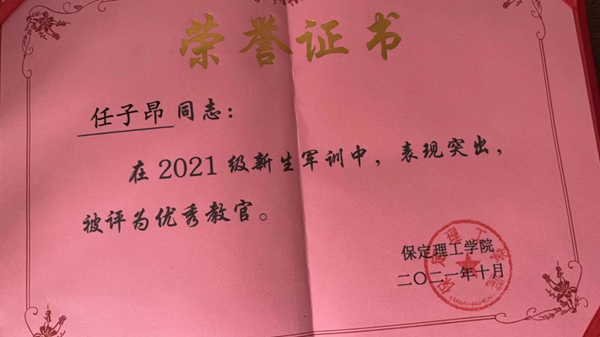 荣誉证书
任子昂 同志：
在 2021 级新生军训中，表现突出，
被评为优秀教官。
保定理工学院
二〇二一年十月
保定理工学院